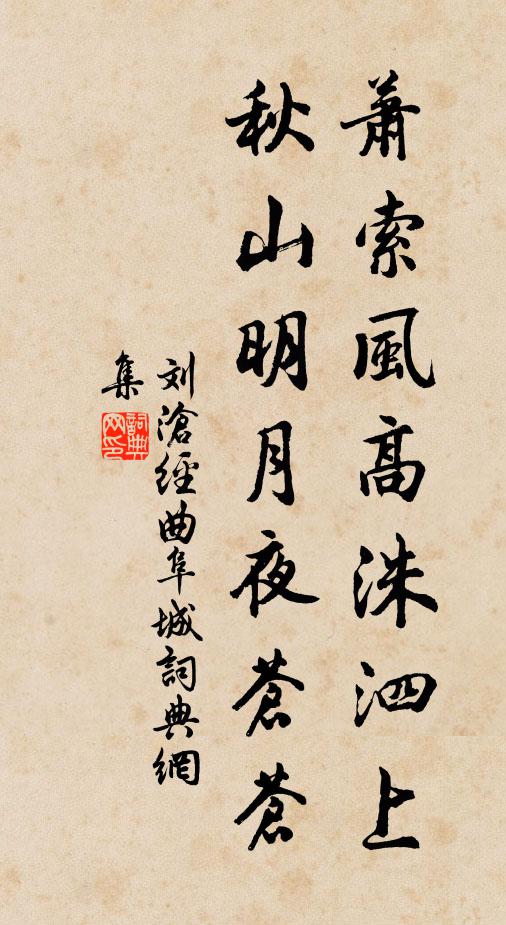 蕭索風高洙泗上
秋山明月夜蒼蒼
刘滄經曲阜城詞典網
集
詞典
网印